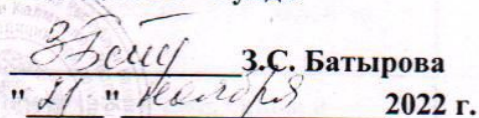 З.С. Батырова
"21" ноября 2022 г.